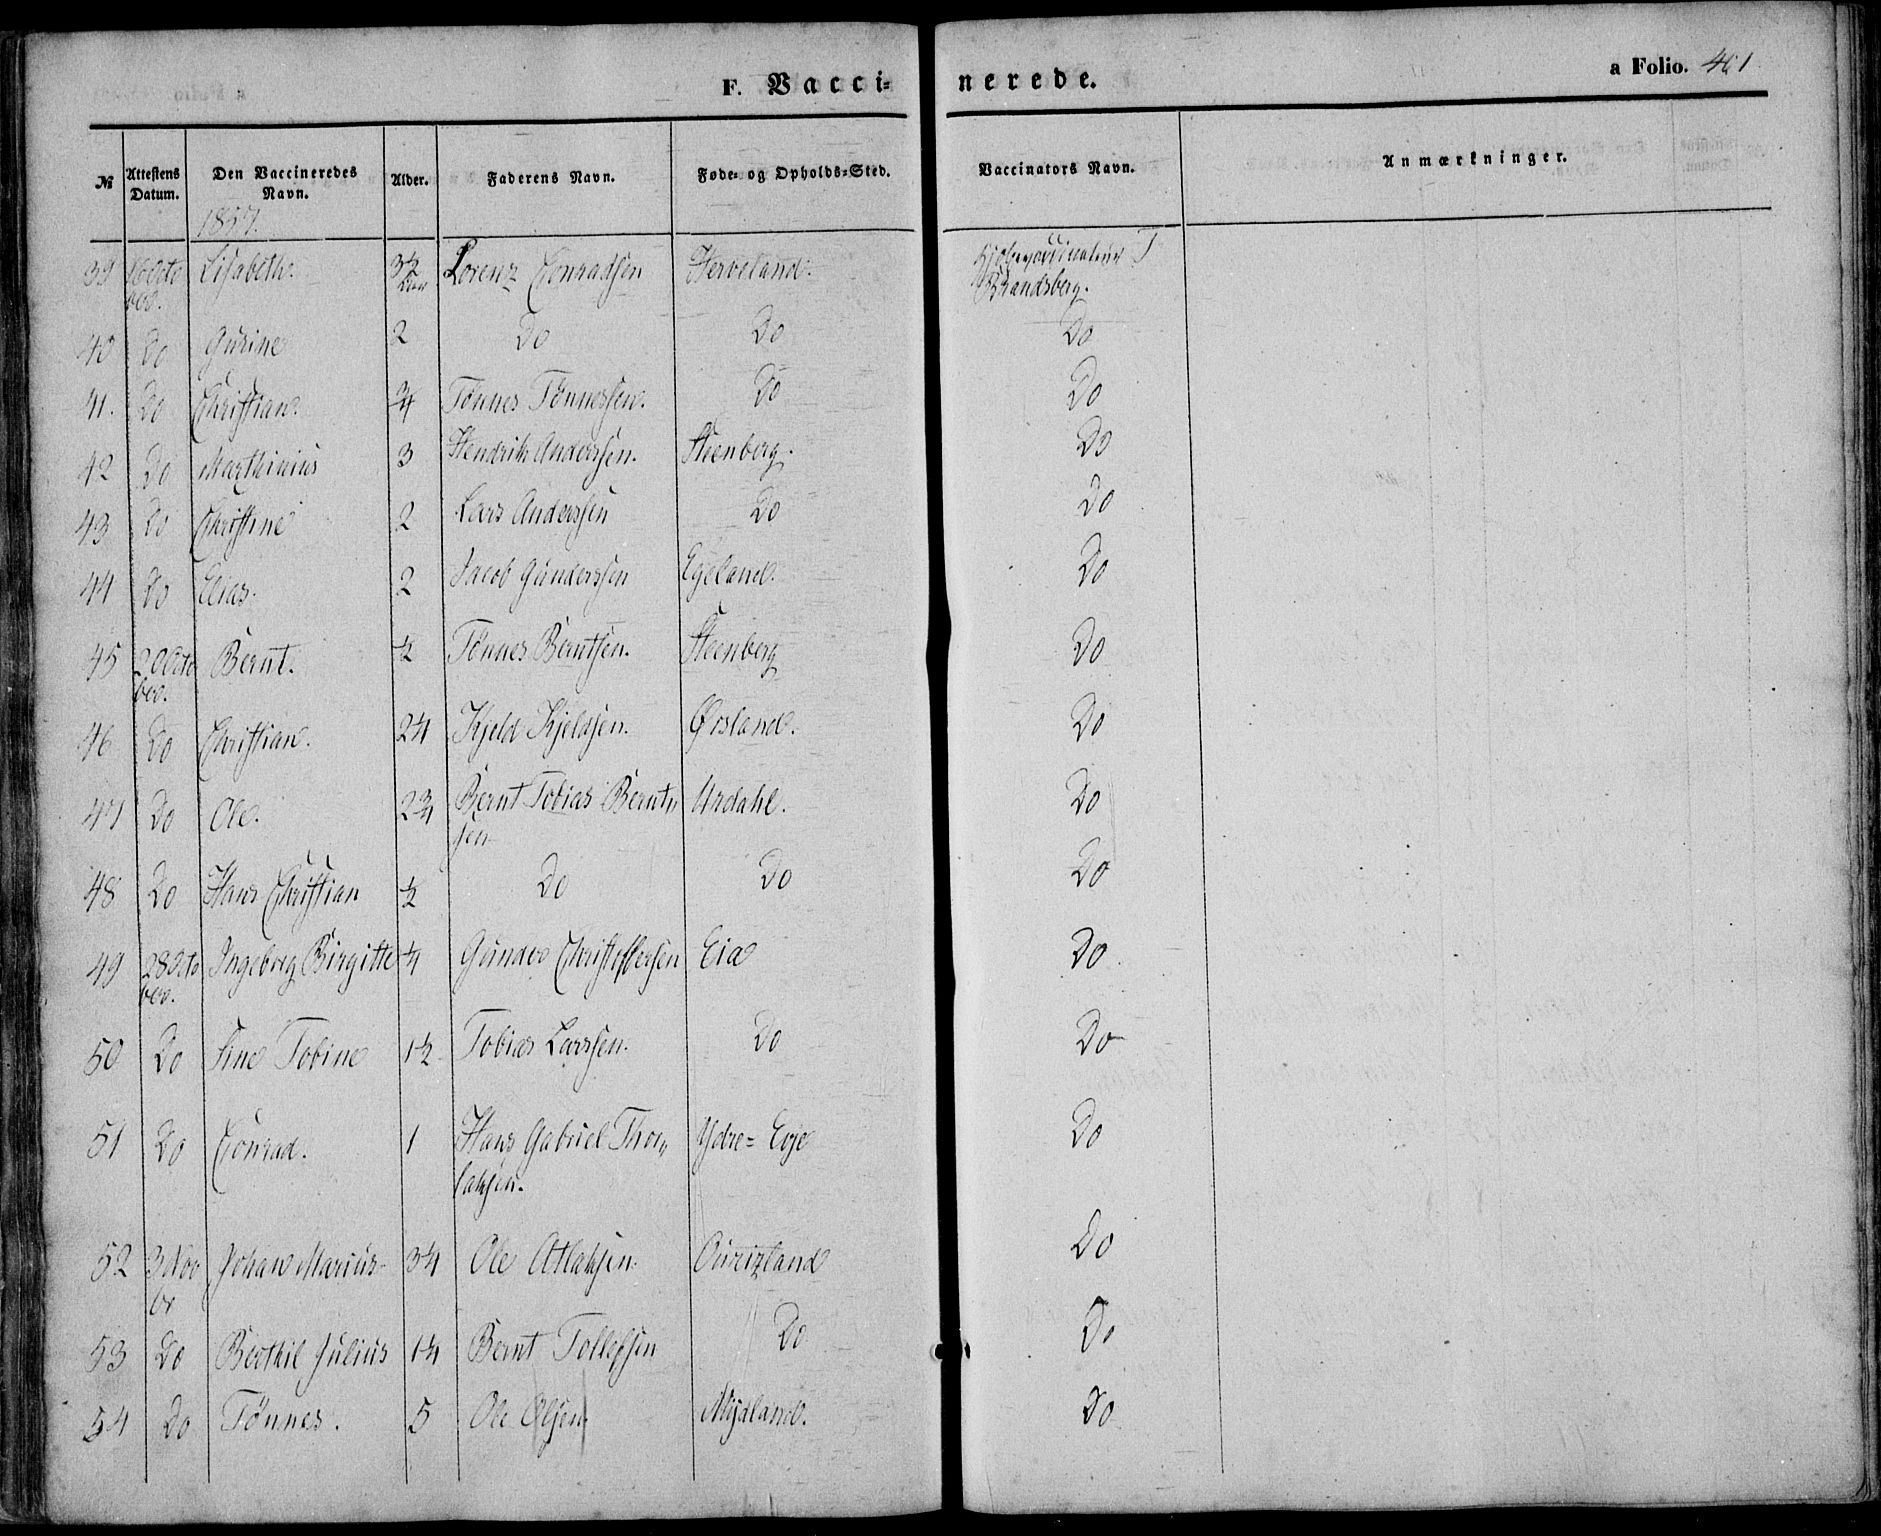 F. Vacci- nerede. a Folio. 461
№ Attestens Datum. Den Vaccineredes Navn. Alder. Faderens Navn. Føde- og Opholds-Sted. Vaccinators Navn. Anmærkninger.
1857.
39 16 Octo ber. Lisabeth. 3½ Lorenz Conradsen Herveland. T Brandsberg.
40 Do Gurine 2 Do Do Do
41. Do Christian. ¾ Tönnes Tönnessen. Do Do
42 Do Marthinius 3 Hendrik Anderssen. Steenberg. Do
43 Do Christine 2 Lars Anderssen Do Do
44 Do Elias. 2 Jacob Gunderssen Egeland. Do
45 20 Octo ber. Bernt. ½ Tönnes Berntsen. Steenberg Do
46 Do Christian. 2¼ Kjeld Kjeldsen. Ørsland. Do
47 Do Ole. 2¾ Bernt Tobias Bernt„ sen Urdahl. Do
48 Do Hans Christian ½ Do Do Do
49 28 Octo ber. Ingeborg Birgitte ¼ Gunder Christoffersen Eia Do
50 Do Sine Tobine 1½ Tobias Larssen. Do Do
51 Do Conrad. 1 Hans Gabriel Thor„ laksen. Ydre= Eye Do
52 3 Nov br Johan Marius 3¼ Ole Atlaksen. Do
53 Do Berthil Julius 1¼ Bernt Tollefsen Do Do
54 Do Tönnes. 5 Ole Olsen Mydland. Do